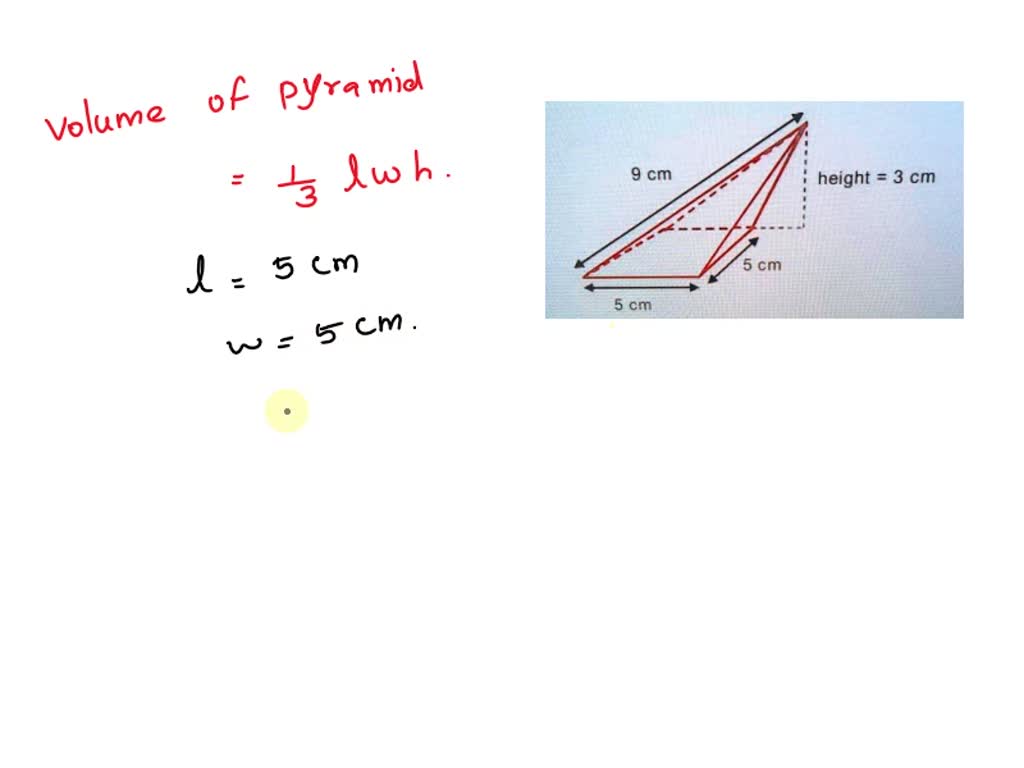 volume of pyramid
= 1/3 lwh.
l = 5 cm
w = 5 cm.
9 cm
height = 3 cm
5 cm
5 cm